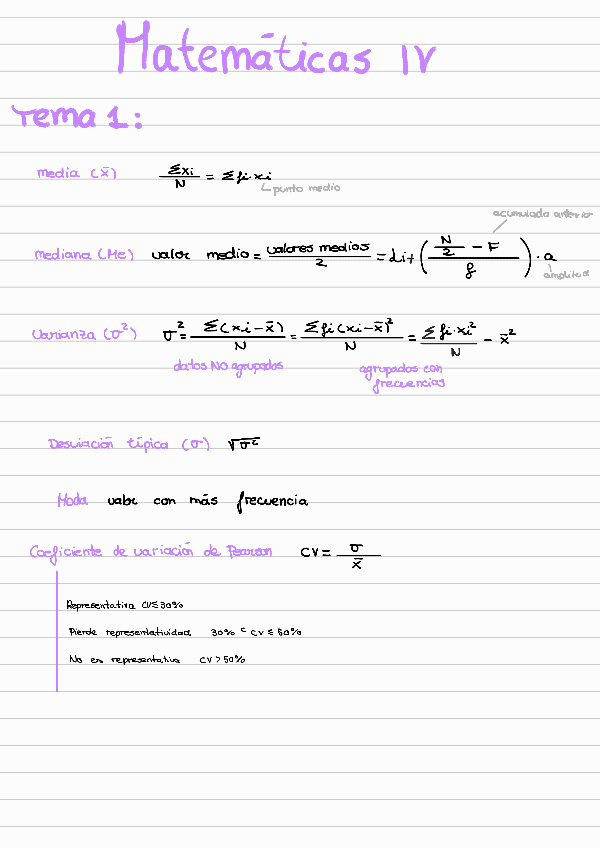 Matemáticas IV
Tema 1:
media (x̄) Σxi/N = Σfi·xi
punto medio
acumulada anterior
mediana (Me) valor medio = valores medios/2 = Li + ((N/2 - F)/f) · a
amplitud
Varianza (σ²) σ² = Σ(xi-x̄)/N = Σfi(xi-x̄)²/N = Σfi·xi²/N - x̄²
datos NO agrupados
agrupados con
frecuencias
Desviación típica (σ) √σ²
Moda valor con más frecuencia
Coeficiente de variación de Pearson CV = σ/x̄
Representativa CV≤30%
Pierde representatividad 30% < CV ≤ 50%
No es representativa CV > 50%